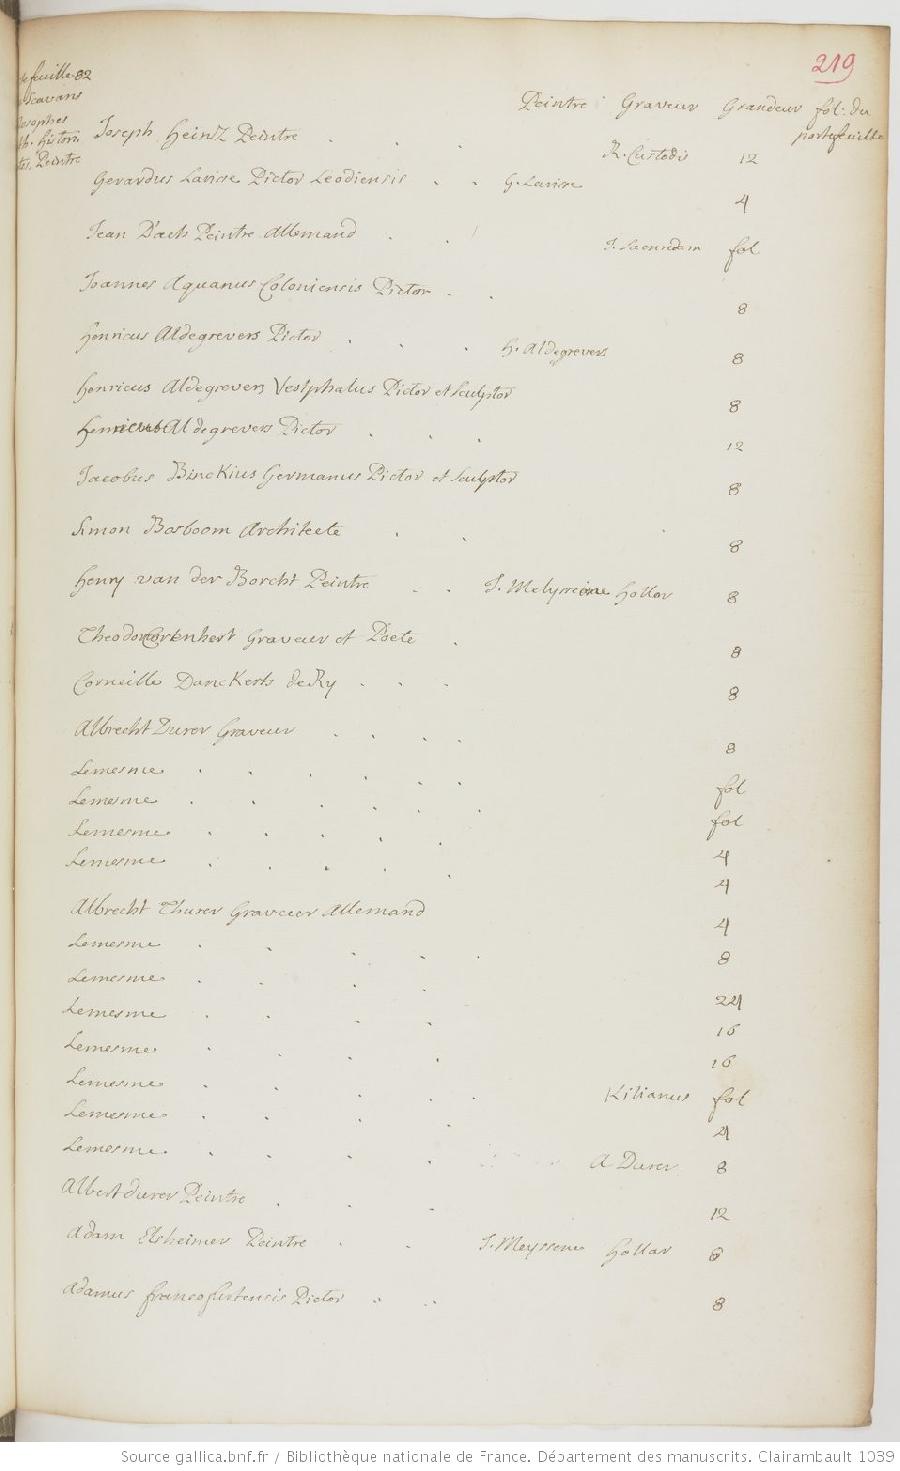 219
feuille 82
Scavans
histori
Peintre
Peintre Graveur Grandeur fol. du
portefeuille
Joseph Heinz Peintre R. Custodis 12
Gerardus Larisse Pictor Leodiensis G. Larisse 4
Jean D'ach Peintre Allemand J. Saenredam fol
Joannes Aquanus Coloniensis Pictor 8
Henricus Aldegrevers Pictor H. Aldegrevers 8
Henricus Aldegrevers Vestphalus Pictor et Sculptor 8
Henricus Aldegrevers Pictor 12
Jacobus Binckius Germanus Pictor et Sculptor 8
Simon Bosboom Architecte 8
Henry van der Borcht Peintre Hollar 8
Graveur et Poete 8
Corneille Danckerts de Ry 8
Albrecht Durer Graveur 8
Lemesme fol
Lemesme fol
Lemesme 4
Lemesme 4
Albrecht Thurer Graveur Allemand 4
Lemesme 8
Lemesme 24
Lemesme 16
Lemesme 16
Lemesme Kilianus fol
Lemesme 4
Lemesme A Durer 8
Albert durer Peintre 12
Adam Elsheimer Peintre J. Meyssens Hollar 8
Adamus francofurtensis Pictor 8
Source gallica.bnf.fr / Bibliothèque nationale de France. Département des manuscrits. Clairambault 1039